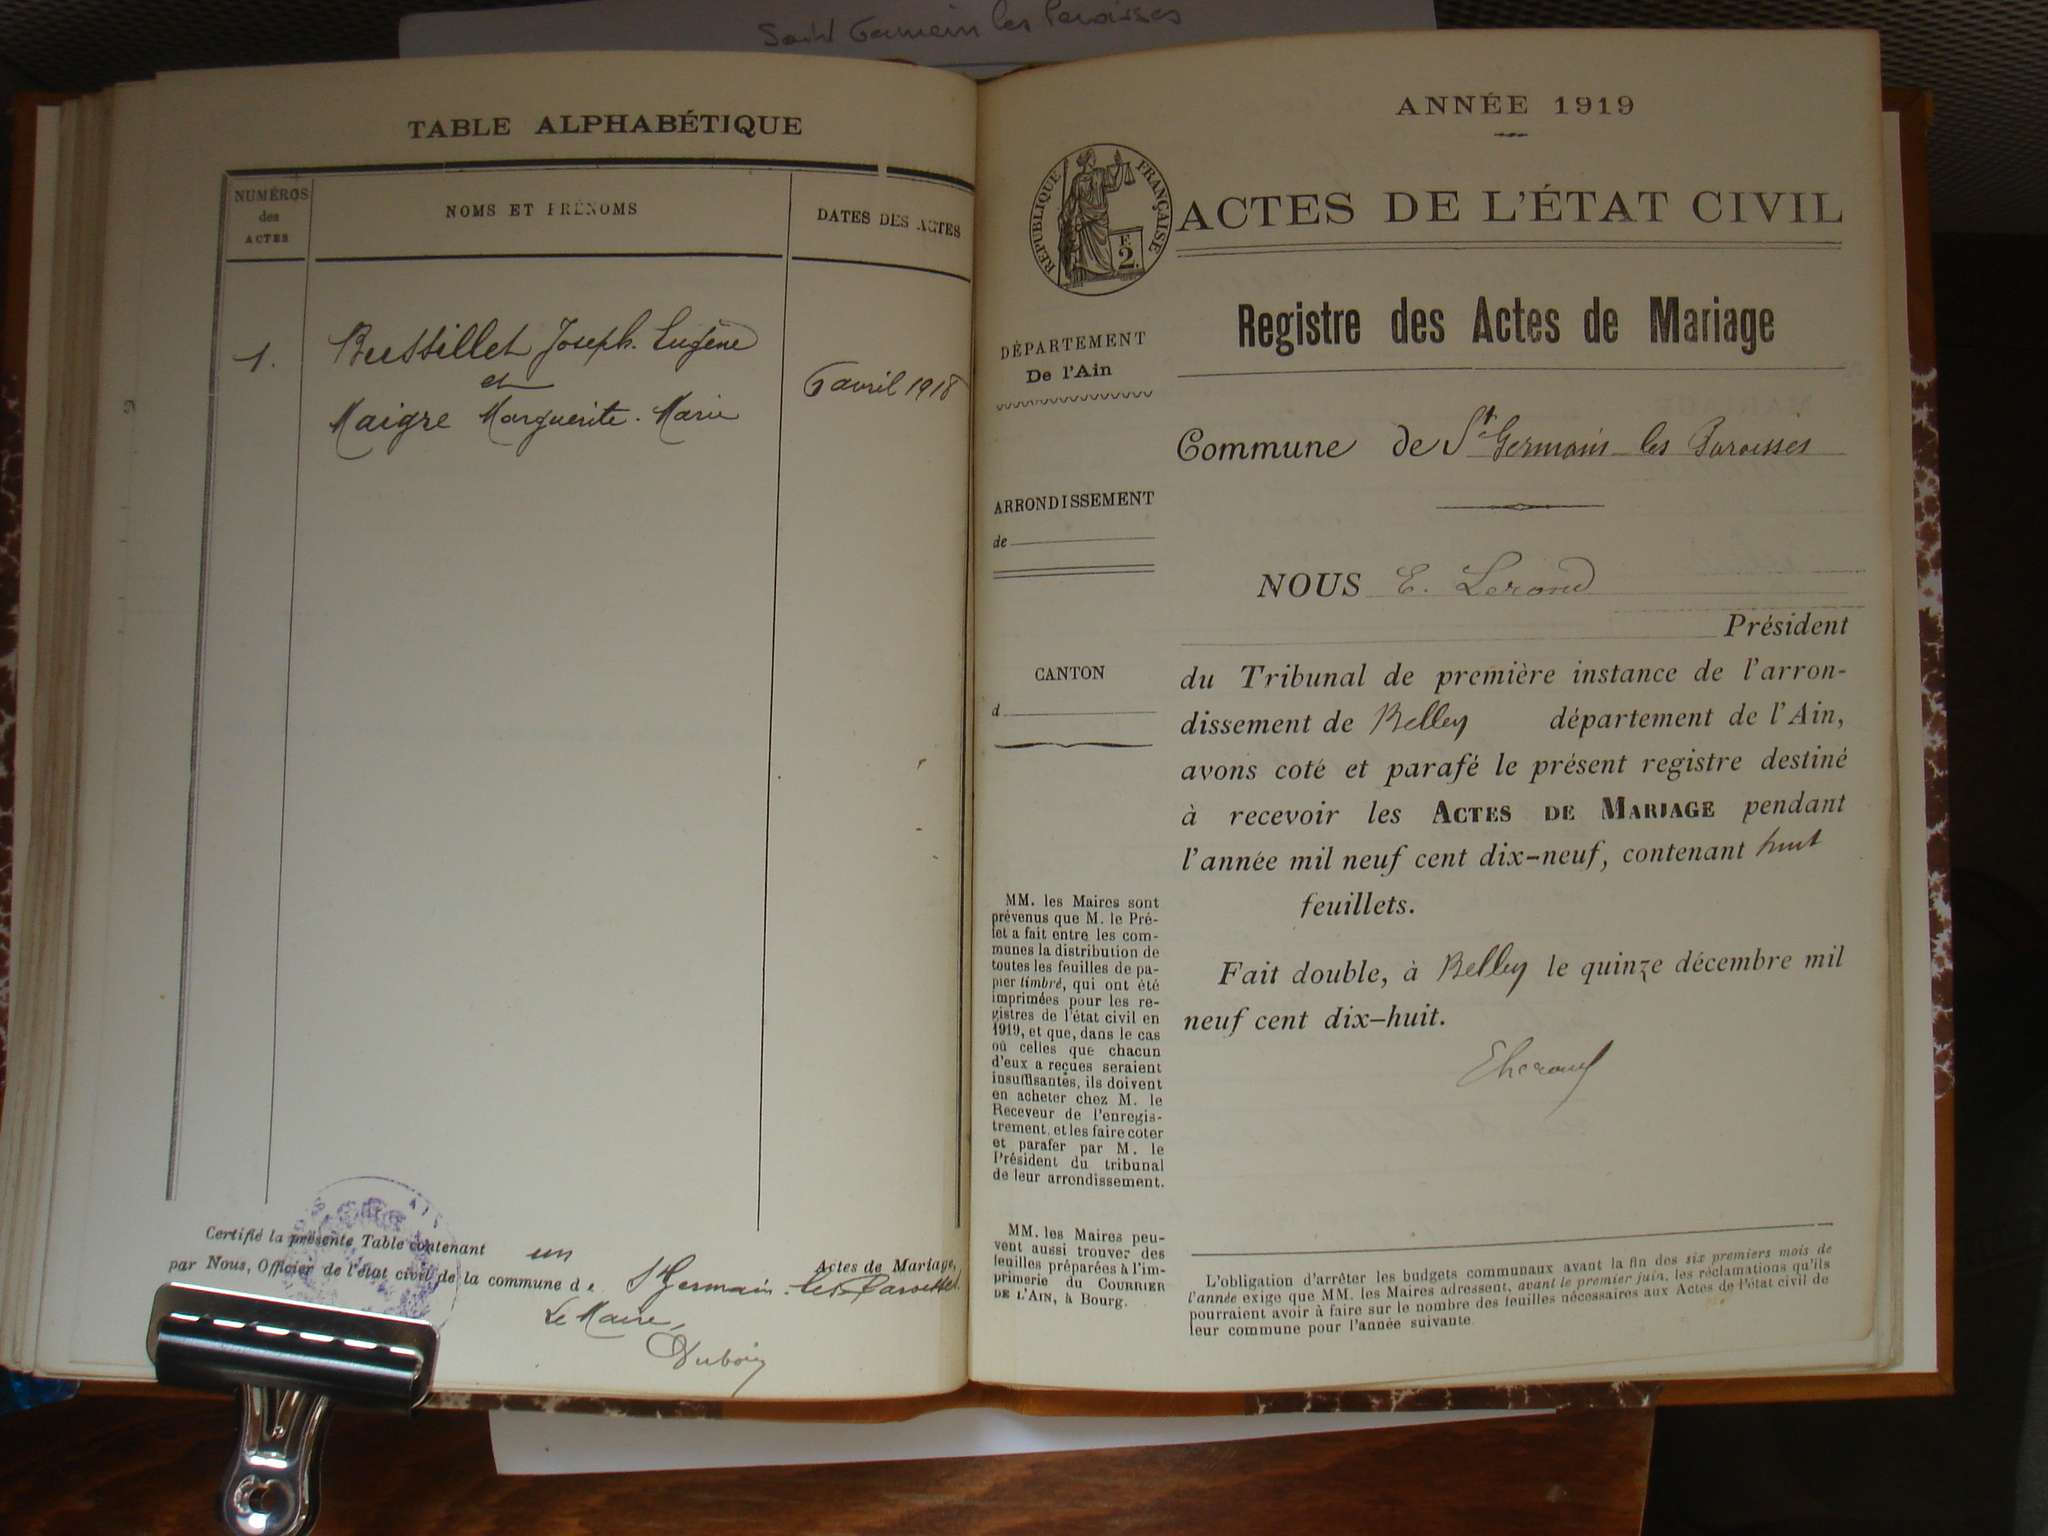 Saint Germain les Paroisses
TABLE ALPHABÉTIQUE
NUMÉROS
des
ACTES
NOMS ET PRÉNOMS
DATES DES ACTES
1.
Bussillet Joseph. Eugène
et
Maigre Marguerite. Marie
6 avril 1918
Certifié la présente Table contenant un Actes de Mariage,
par Nous, Officier de l'état civil de la commune de St Germain. les Paroisses.
Le Maire,
Dubois
ANNÉE 1919
RÉPUBLIQUE FRANÇAISE
F.
2.
ACTES DE L'ÉTAT CIVIL
Registre des Actes de Mariage
DÉPARTEMENT
De l'Ain
Commune de St Germain les Paroisses
ARRONDISSEMENT
de
NOUS E.
Président
CANTON
d
du Tribunal de première instance de l'arron-
dissement de Belley département de l'Ain,
avons coté et parafé le présent registre destiné
à recevoir les ACTES DE MARIAGE pendant
l'année mil neuf cent dix-neuf, contenant huit
feuillets.
Fait double, à Belley le quinze décembre mil
neuf cent dix-huit.
MM. les Maires sont
prévenus que M. le Pré-
fet a fait entre les com-
munes la distribution de
toutes les feuilles de pa-
pier timbré, qui ont été
imprimées pour les re-
gistres de l'état civil en
1919, et que, dans le cas
où celles que chacun
d'eux a reçues seraient
insuffisantes, ils doivent
en acheter chez M. le
Receveur de l'enregis-
trement, et les faire coter
et parafer par M. le
Président du tribunal
de leur arrondissement.
MM. les Maires peu-
vent aussi trouver des
feuilles préparées à l'im-
primerie du COURRIER
DE L'AIN, à Bourg.
L'obligation d'arrêter les budgets communaux avant la fin des six premiers mois de
l'année exige que MM. les Maires adressent, avant le premier juin, les réclamations qu'ils
pourraient avoir à faire sur le nombre des feuilles nécessaires aux Actes de l'état civil de
leur commune pour l'année suivante.